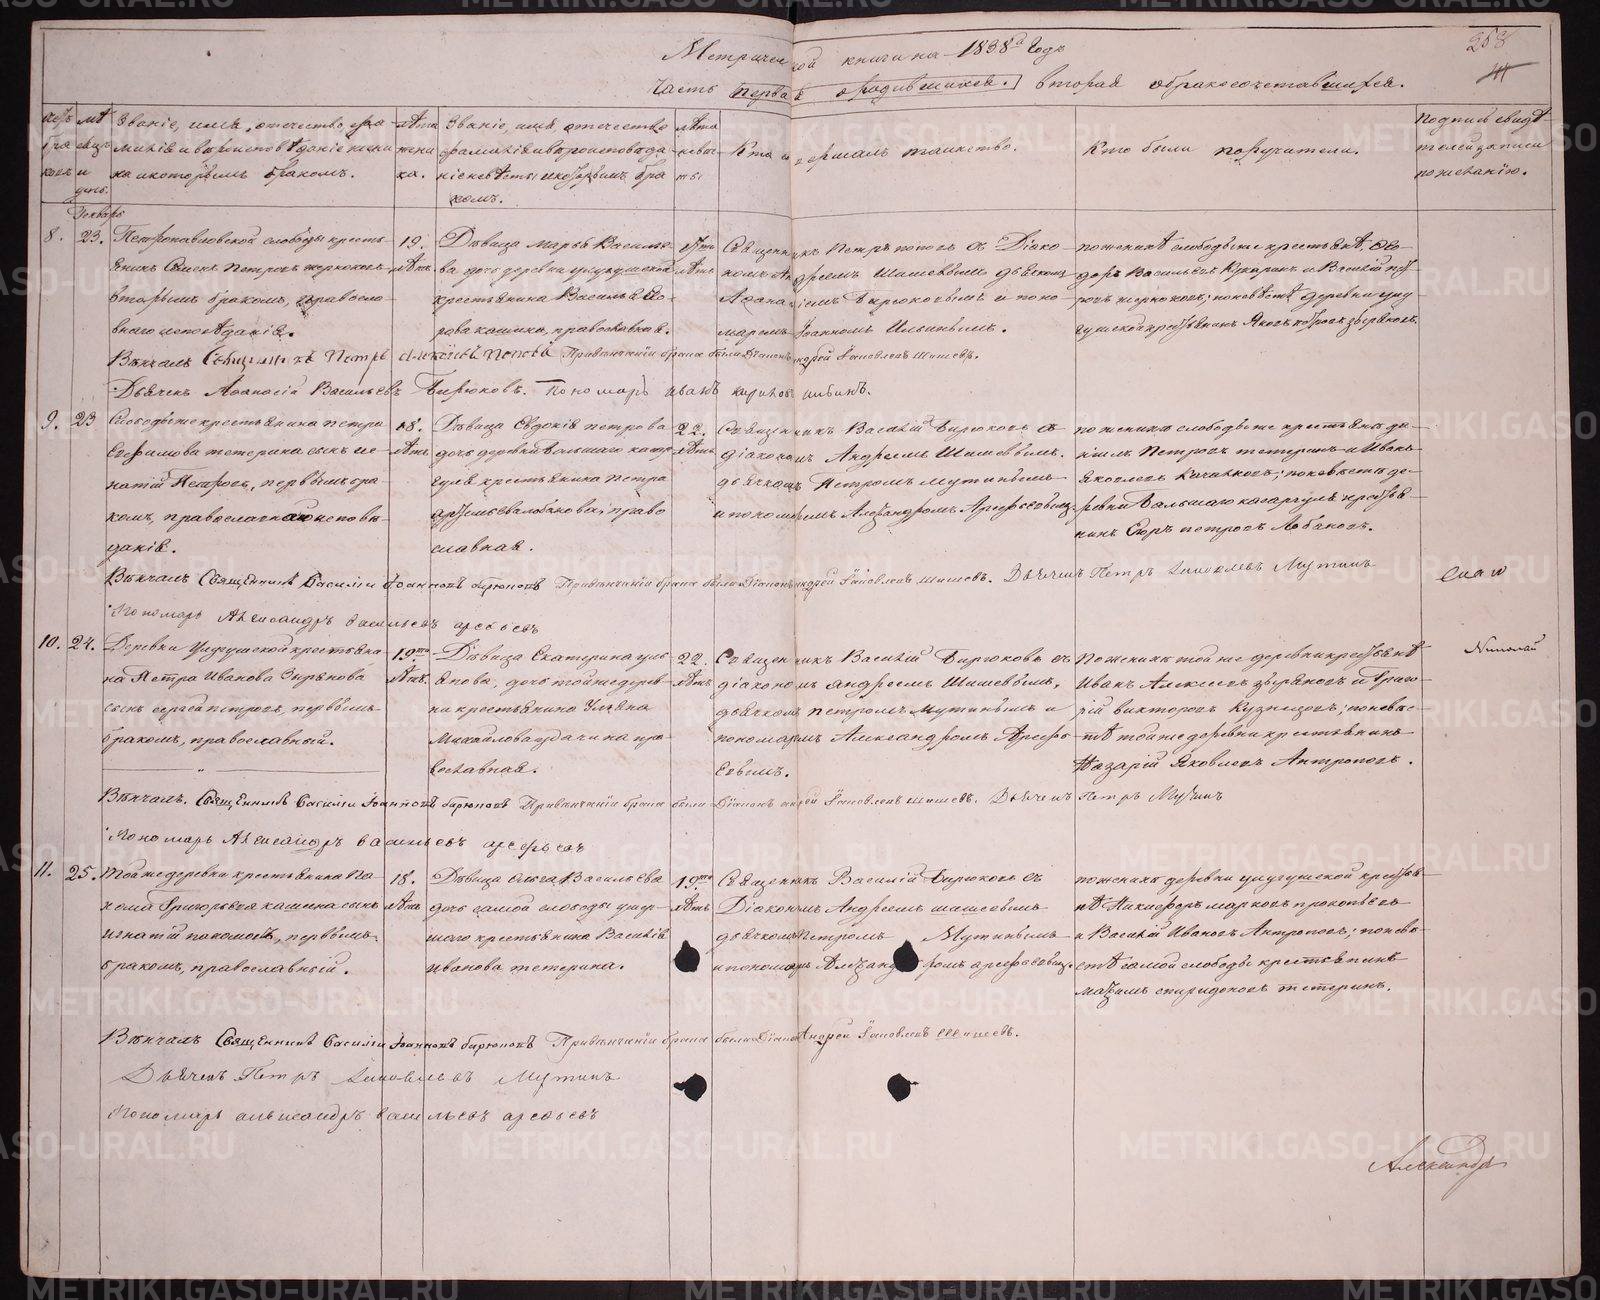 Метрической книги на 1838й Годъ
258
Часть первая о родившихся. вторая о бракосочетавшихся.
Званіе, имя, отечество, фа-
милія и вѣроисповѣданіе жени-
ха и которымъ бракомъ.
лѣта
жени
ха.
Званіе, имя, отечество
фамилія и вѣроисповѣда-
ніе невѣсты и которымъ бра
комъ.
лѣта
невѣс-
ты
Кто совершалъ таинство.
Кто были поручители.
Подпись свидѣ-
телей записи
по желанію.
Январь
8. 23.
Петропавловской слободы кресть-
янинъ Семенъ Петровъ
вторымъ бракомъ, правосла-
внаго исповѣданія.
19.
лѣтъ.
Дѣвица Марѳа Василье-
ва дочь деревни
крестьянина Василья
православная.
лѣтъ
Священникъ Петръ Поповъ съ Діако-
номъ Андреемъ Шишевымъ дьячкомъ
Аѳанасіемъ Бирюковымъ и поно-
маремъ Іоанномъ
по женихѣ слободы же крестьяне Ѳе-
доръ Васильевъ и Василій Пет-
ровъ по невѣстѣ деревни
крестьянинъ Яковъ
Вѣнчалъ Священникъ Петръ Алексѣевъ Поповъ При вѣнчаніи брака были Діаконъ Андрей Іаковлевъ Шишевъ.
Дьячекъ Аѳанасій Васильевъ Бирюковъ. Пономарь Иванъ
9. 23
Слободы же крестьянина Петра
Ефимова Тетерина сынъ Иг-
натій Петровъ, первымъ бра-
комъ, православнаго исповѣ-
данія.
18.
лѣтъ
Дѣвица Евдокія Петрова
дочь деревни Большаго
крестьянина Петра
право
славная.
22.
лѣтъ
Священникъ Василій Бирюковъ съ
діакономъ Андреемъ Шишевымъ.
дьячкомъ Петромъ Мутинымъ
и пономаремъ Александромъ Арефьевымъ
по женихѣ слободы же крестьяне Да-
ніилъ Петровъ Тетеринъ и Иванъ
Яковлевъ по невѣстѣ де-
ревни Большаго крестья-
нинъ Егоръ Петровъ Лобановъ.
Вѣнчалъ Священникъ Василій Іоанновъ Бирюковъ При вѣнчаніи брака были Діаконъ Андрей Іаковлевъ Шишевъ. Дьячекъ Петръ Яковлевъ Мутинъ
Пономарь Александръ Васильевъ Арефьевъ
10. 24.
Деревни крестьяни-
на Петра Иванова Зырянова
сынъ Сергей Петровъ, первымъ
бракомъ, православный.
19.
лѣтъ.
Дѣвица Екатерина Уль-
янова, дочь тойже дерев-
ни крестьянина Ульяна
Михайлова Удачина пра-
вославная.
22.
лѣтъ
Священникъ Василій Бирюковъ съ
діакономъ Андреемъ Шишевымъ,
дьячкомъ Петромъ Мутинымъ и
пономаремъ Александромъ Арефь-
евымъ.
По женихѣ той же деревни крестьяне
Иванъ Алексѣевъ Зыряновъ и Григо-
рій Викторовъ Кузнецовъ; по невѣс-
тѣ той же деревни крестьянинъ
Назарій Яковлевъ Антроповъ.
Николай
Вѣнчалъ. Священникъ Василій Іоанновъ Бирюковъ При вѣнчаніи брака были Діаконъ Андрей Іаковлевъ Шишевъ. Дьячекъ Петръ Мутинъ
Пономарь Александръ Васильевъ Арефьевъ
11. 25.
Той же деревни крестьянина Па-
хома Григорьева Кашина сынъ
Игнатій Пахомовъ, первымъ
бракомъ, православный.
18.
лѣтъ
Дѣвица Ольга Васильева
дочь самой слободы умер-
шаго крестьянина Василія
Иванова Тетерина.
19.
лѣтъ
Священникъ Василій Бирюковъ съ
Діакономъ Андреемъ Шишевымъ
дьячкомъ Петромъ Мутинымъ
и пономаремъ Александромъ Арефьевымъ.
по женихѣ деревни крестья-
не Никифоръ Марковъ Прокопьевъ
и Василій Ивановъ Антроповъ; по невѣ-
стѣ самой слободы крестьянинъ
Максимъ Спиридоновъ Тетеринъ.
Вѣнчалъ Священникъ Василій Іоанновъ Бирюковъ При вѣнчаніи брака были Діаконъ Андрей Іаковлевъ Шишевъ.
Дьячекъ Петръ Яковлевъ Мутинъ
Пономарь Александръ Васильевъ Арефьевъ
Александръ
METRIKI.GASO-URAL.RU